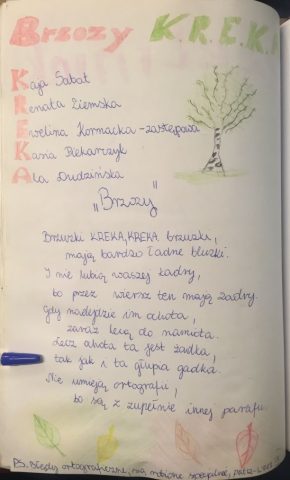 Brzozy K.R.E.K.A
Kaja Sabat
Renata Ziemska
Ewelina Kornacka - zastępowa
Kasia Piekarczyk
Ala Dudzińska
„Brzozy"
Brzuzki KREKA, KREKA brzuzki,
mają bardzo ładne bluzki.
I nie lubią waszej żadry,
bo przez wiersz ten mają żadry.
Gdy nadejdzie im ahota,
zaraz lecą do namiota.
Lecz ahota ta jest żadka,
tak jak i ta głupa gadka.
Nie umieją ortografii,
bo są z zupełnie innej parafii.
PS. Błędy ortograficzne, są robione specjalnie,